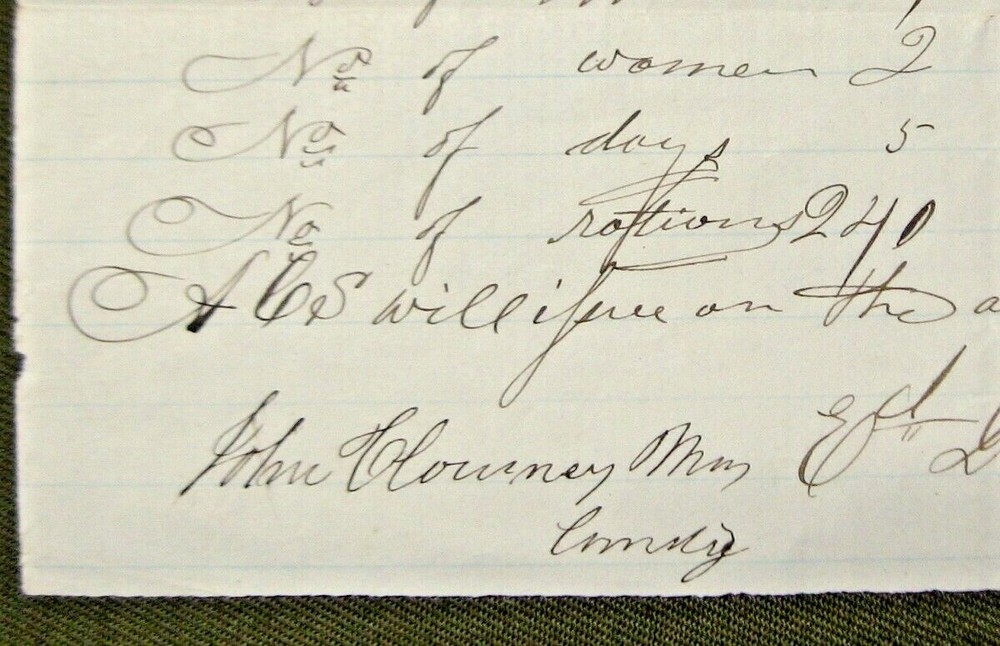 No of women 2
No of days 5
No of rations 240
A C S will issue on the a
John Clowney
Comdg